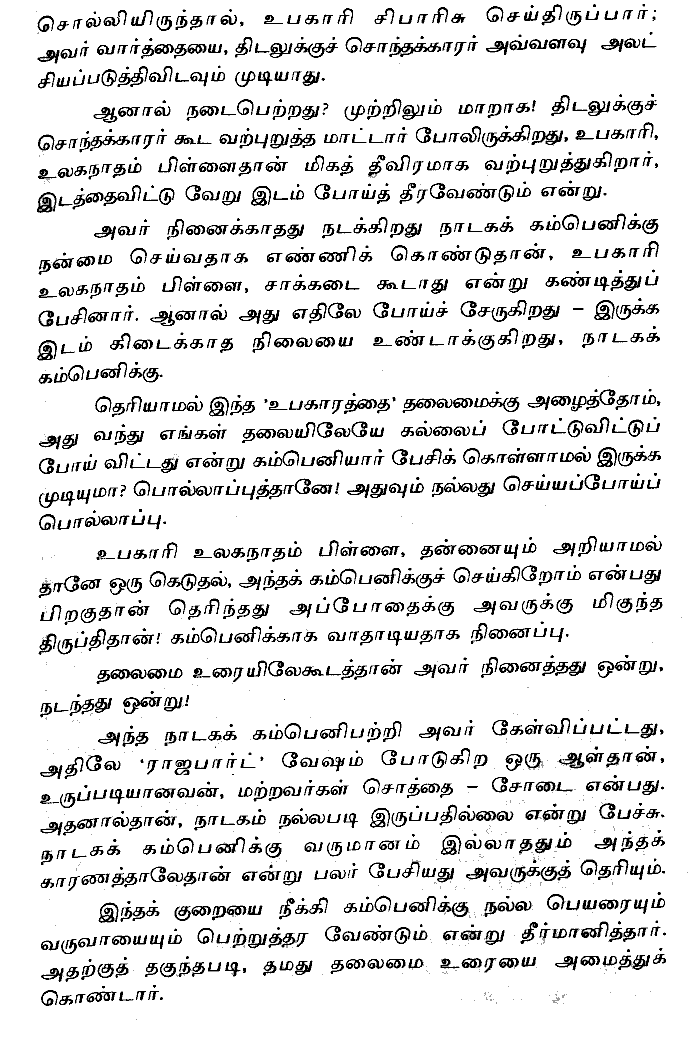 சொல்லியிருந்தால், உபகாரி சிபாரிசு செய்திருப்பார்;
அவர் வார்த்தையை, திடலுக்குச் சொந்தக்காரர் அவ்வளவு அலட்
சியப்படுத்திவிடவும் முடியாது.
ஆனால் நடைபெற்றது? முற்றிலும் மாறாக! திடலுக்குச்
சொந்தக்காரர் கூட வற்புறுத்த மாட்டார் போலிருக்கிறது, உபகாரி,
உலகநாதம் பிள்ளைதான் மிகத் தீவிரமாக வற்புறுத்துகிறார்,
இடத்தைவிட்டு வேறு இடம் போய்த் தீரவேண்டும் என்று.
அவர் நினைக்காதது நடக்கிறது நாடகக் கம்பெனிக்கு
நன்மை செய்வதாக எண்ணிக் கொண்டுதான், உபகாரி
உலகநாதம் பிள்ளை, சாக்கடை கூடாது என்று கண்டித்துப்
பேசினார். ஆனால் அது எதிலே போய்ச் சேருகிறது – இருக்க
இடம் கிடைக்காத நிலையை உண்டாக்குகிறது, நாடகக்
கம்பெனிக்கு.
தெரியாமல் இந்த 'உபகாரத்தை' தலைமைக்கு அழைத்தோம்,
அது வந்து எங்கள் தலையிலேயே கல்லைப் போட்டுவிட்டுப்
போய் விட்டது என்று கம்பெனியார் பேசிக் கொள்ளாமல் இருக்க
முடியுமா? பொல்லாப்புத்தானே! அதுவும் நல்லது செய்யப்போய்ப்
பொல்லாப்பு.
உபகாரி உலகநாதம் பிள்ளை, தன்னையும் அறியாமல்
தானே ஒரு கெடுதல், அந்தக் கம்பெனிக்குச் செய்கிறோம் என்பது
பிறகுதான் தெரிந்தது அப்போதைக்கு அவருக்கு மிகுந்த
திருப்திதான்! கம்பெனிக்காக வாதாடியதாக நினைப்பு.
தலைமை உரையிலேகூடத்தான் அவர் நினைத்தது ஒன்று,
நடந்தது ஒன்று!
அந்த நாடகக் கம்பெனிபற்றி அவர் கேள்விப்பட்டது,
அதிலே 'ராஜபார்ட்' வேஷம் போடுகிற ஒரு ஆள்தான்,
உருப்படியானவன், மற்றவர்கள் சொத்தை – சோடை என்பது.
அதனால்தான், நாடகம் நல்லபடி இருப்பதில்லை என்று பேச்சு.
நாடகக் கம்பெனிக்கு வருமானம் இல்லாததும் அந்தக்
காரணத்தாலேதான் என்று பலர் பேசியது அவருக்குத் தெரியும்.
இந்தக் குறையை நீக்கி கம்பெனிக்கு நல்ல பெயரையும்
வருவாயையும் பெற்றுத்தர வேண்டும் என்று தீர்மானித்தார்.
அதற்குத் தகுந்தபடி, தமது தலைமை உரையை அமைத்துக்
கொண்டார்.